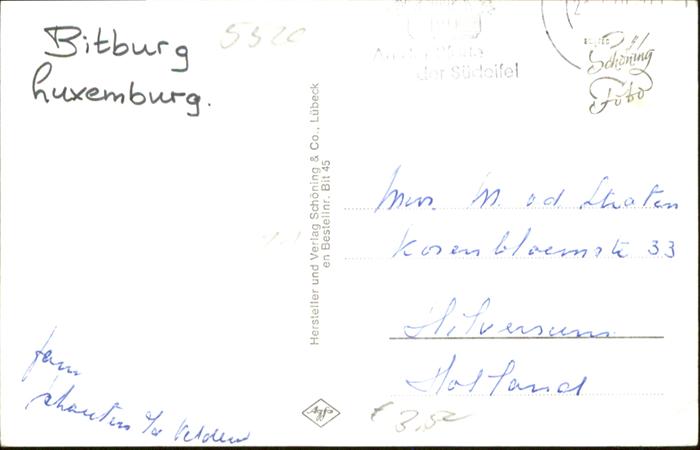 Bitburg
Luxemburg.
5520
der Südeifel
Schöning
Foto
Hersteller und Verlag Schöning & Co., Lübeck
en Bestellnr. Bit 45
Mevr. M. v d Straten
Korenbloemstr 33
Hilversum
Holland
fam
Schouten v/d Velden
Agfa